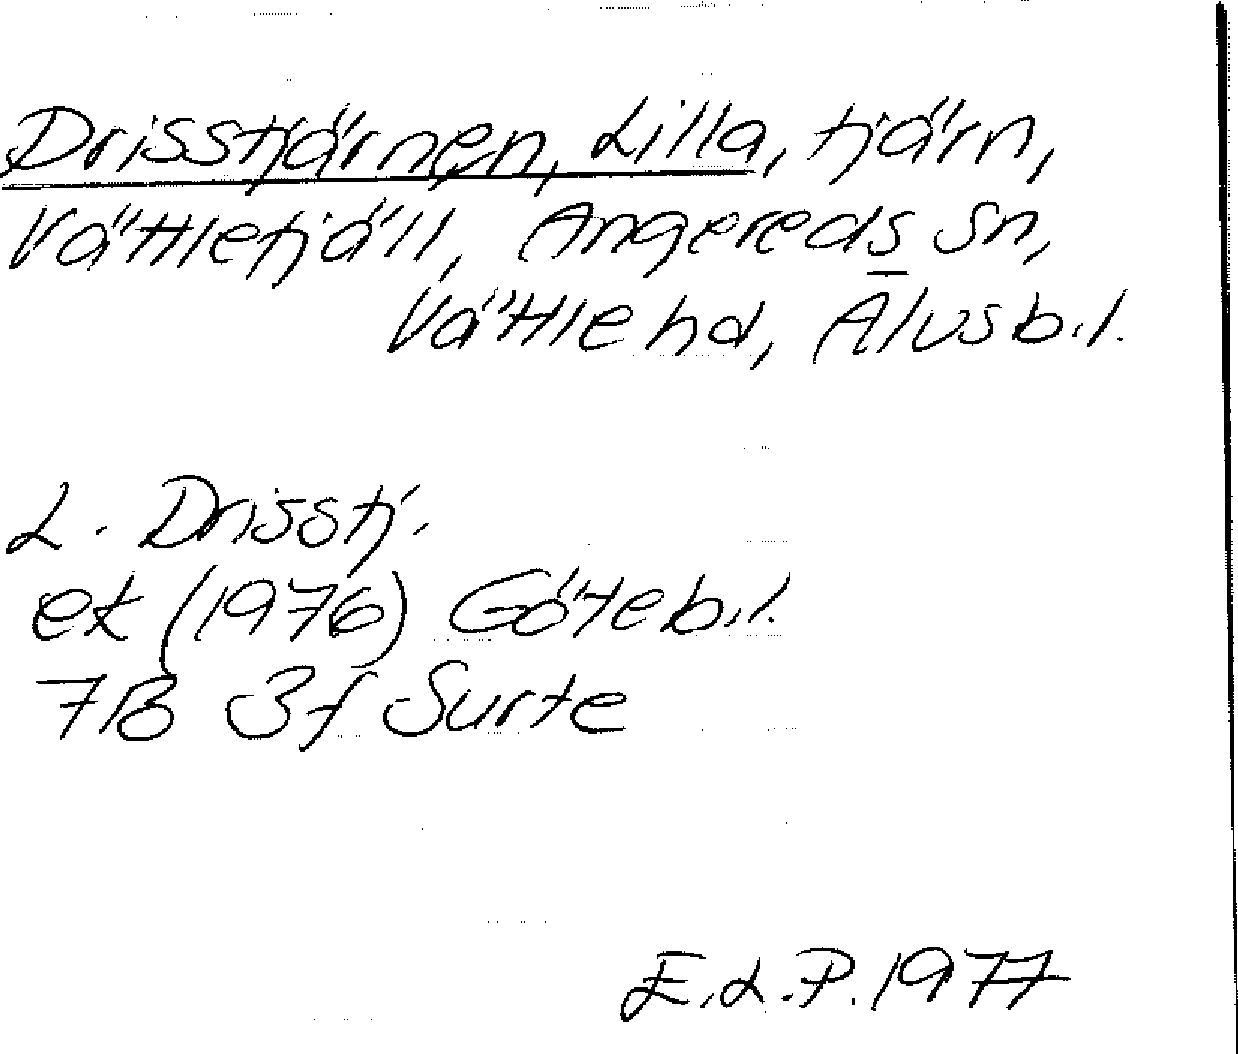 Drisstjärnen, Lilla, tjärn,
Vättlefjäll, Angereds sn,
Vättle hd, Älvsb.l.
L. Drisstj.
ek (1976) Göteb.l.
7B 3f Surte
E.L.P. 1977